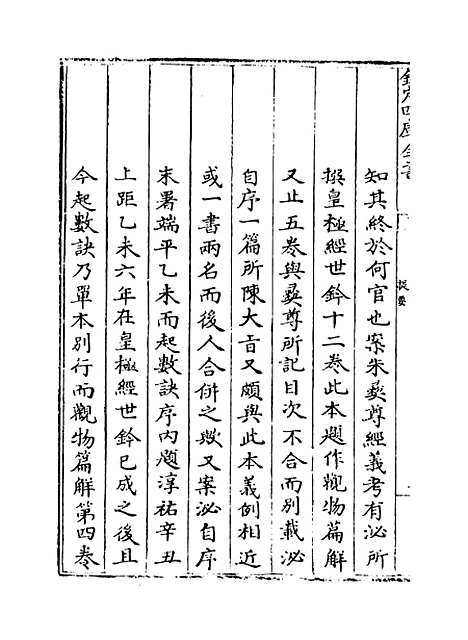 欽定四庫全書
提要
知其終於何官也案朱彝尊經義考有泌所
撰皇極經世鈐十二卷此本題作觀物篇解
又止五卷與彝尊所記目次不合而別載泌
自序一篇所陳大旨又頗與此本義例相近
或一書兩名而後人合併之歟又案泌自序
末署端平乙未而起數訣序內題淳祐辛丑
上距乙未六年在皇極經世鈐已成之後且
今起數訣乃單本別行而觀物篇解第四卷